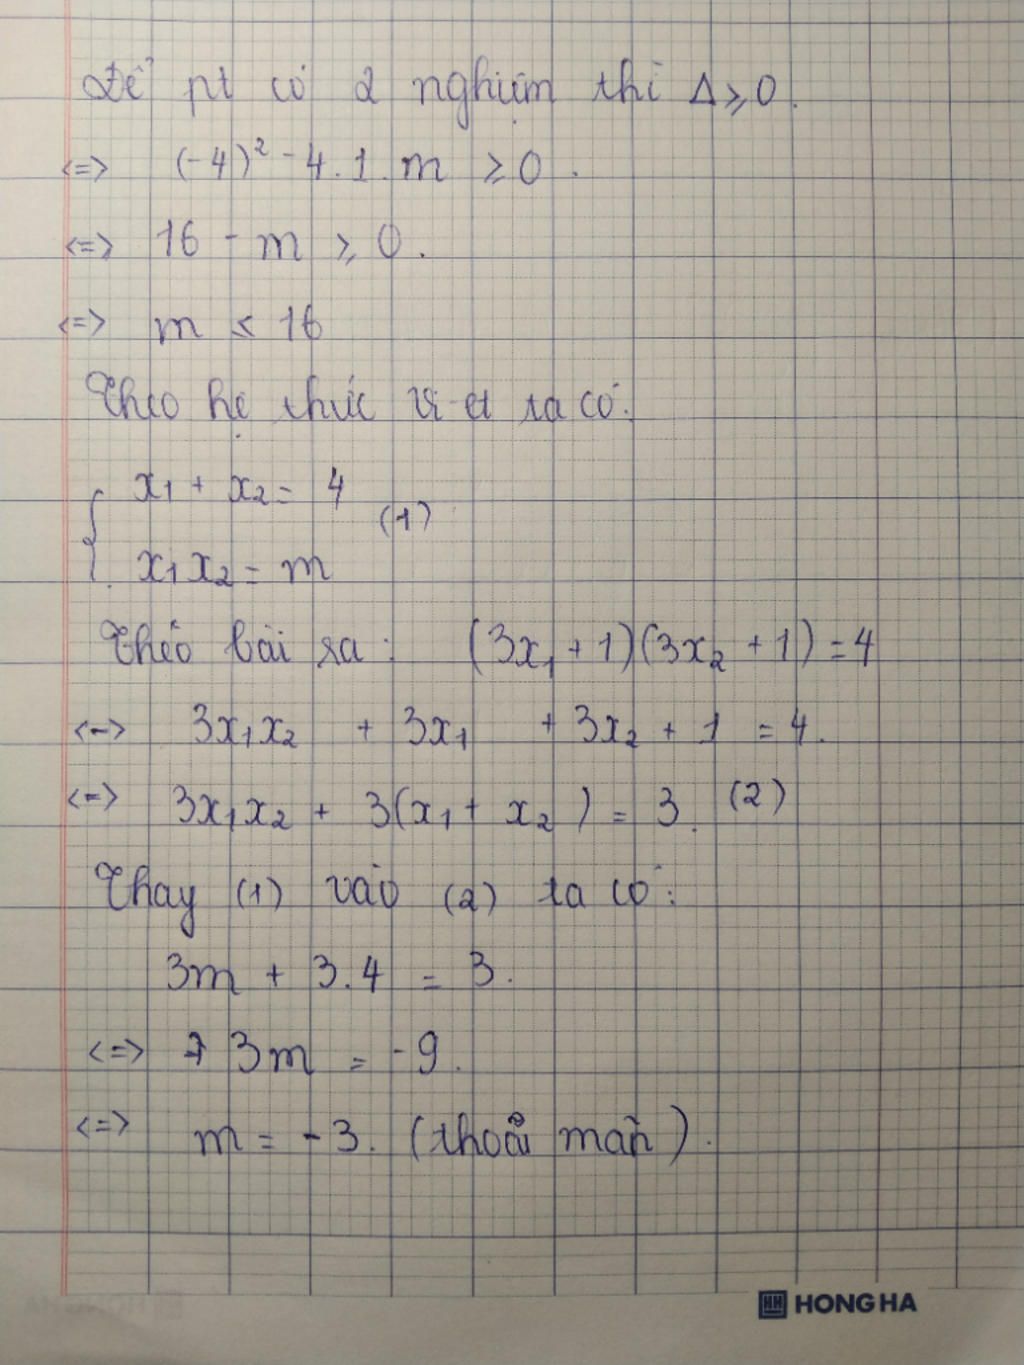 Để pt có 2 nghiệm thì Δ ≥ 0.
<=> (-4)² - 4.1.m ≥ 0.
<=> 16 - m ≥ 0.
<=> m ≤ 16
Theo hệ thức Vi-et ta có:
{ x₁ + x₂ = 4
x₁x₂ = m (1)
Theo bài ra: (3x₁ + 1)(3x₂ + 1) = 4
<=> 3x₁x₂ + 3x₁ + 3x₂ + 1 = 4.
<=> 3x₁x₂ + 3(x₁ + x₂) = 3. (2)
Thay (1) vào (2) ta có:
3m + 3.4 = 3.
<=> 3m = -9.
<=> m = -3. (thoả mãn).
HH HONG HA